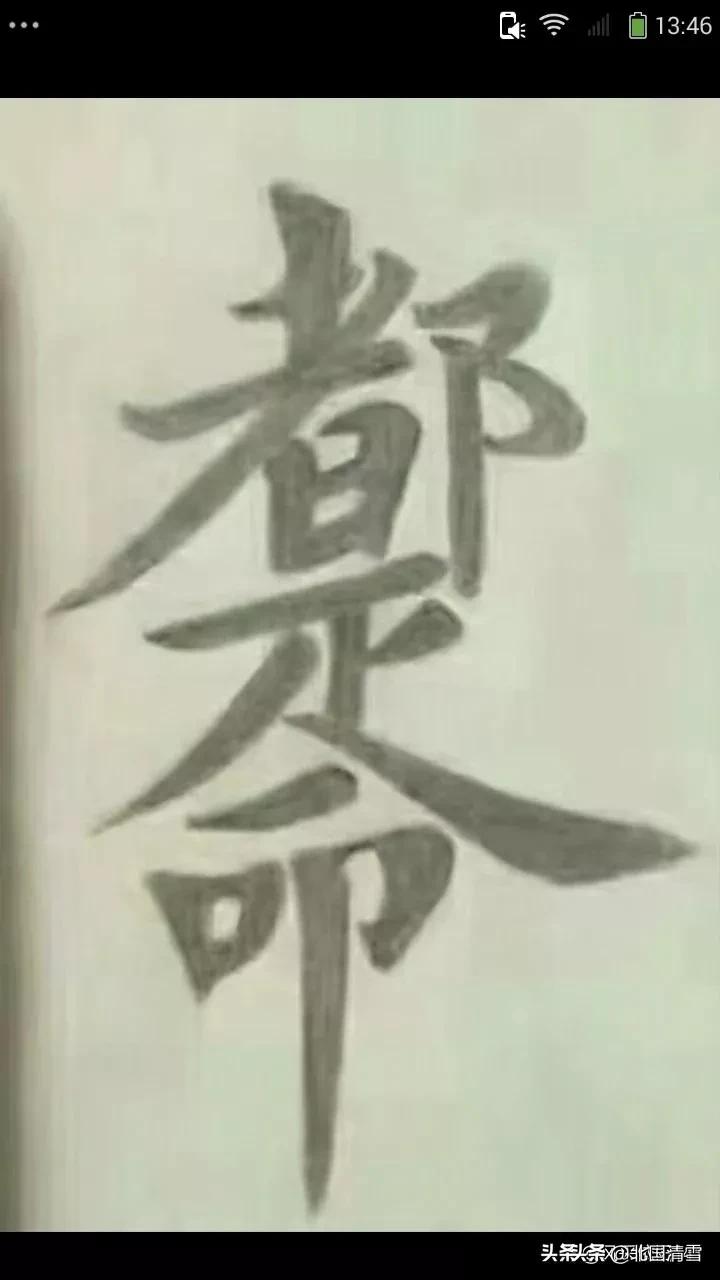 13:46
都是命
头条 @北国清雪